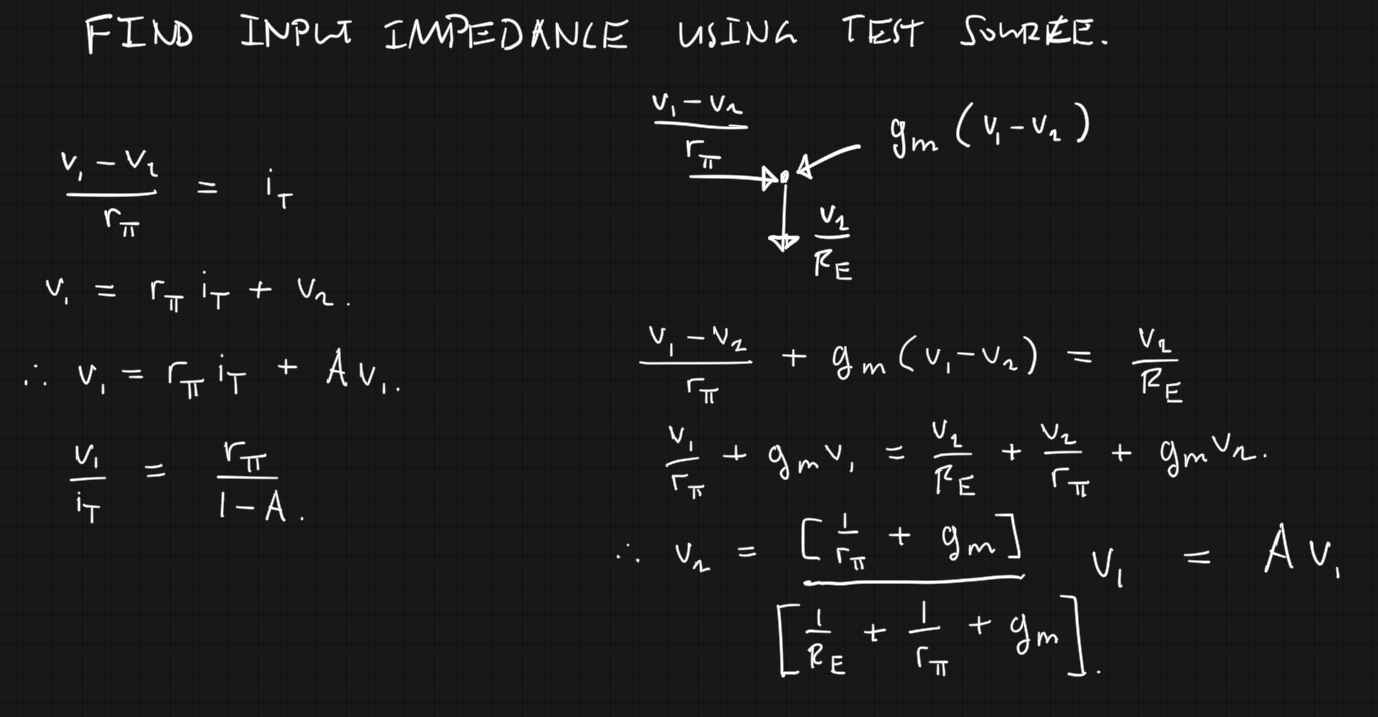 FIND INPUT IMPEDANCE USING TEST SOURCE.
(v₁ - v₂)/r_π = i_T
v₁ = r_π i_T + v₂.
∴ v₁ = r_π i_T + A v₁.
v₁/i_T = r_π/(1 - A).
(v₁ - v₂)/r_π
g_m (v₁ - v₂)
v₂/R_E
(v₁ - v₂)/r_π + g_m (v₁ - v₂) = v₂/R_E
v₁/r_π + g_m v₁ = v₂/R_E + v₂/r_π + g_m v₂.
∴ v₂ = [1/r_π + g_m]/[1/R_E + 1/r_π + g_m]. v₁ = A v₁